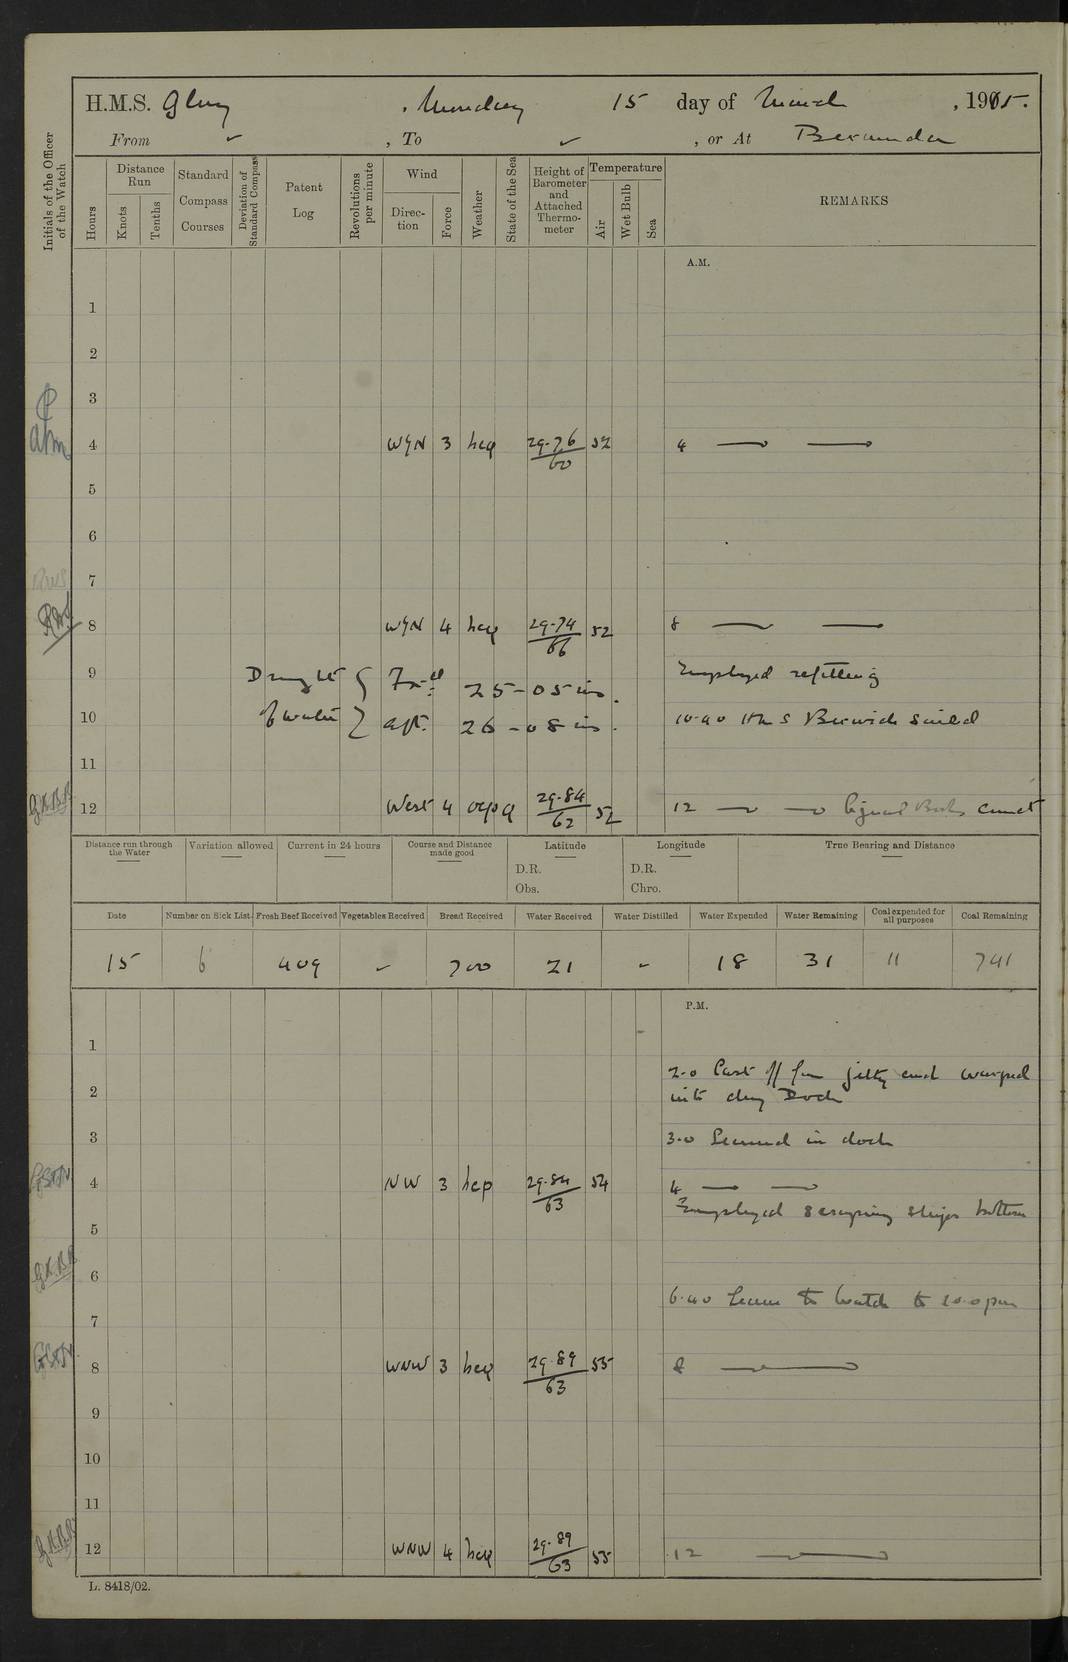 H.M.S. Glory , Monday 15 day of March , 1915.
From ✓ , To ✓ , or At Bermuda
Initials of the Officer of the Watch
Hours
Distance Run
Knots
Tenths
Standard Compass Courses
Deviation of Standard Compass
Patent Log
Revolutions per minute
Wind
Direc-tion
Force
Weather
State of the Sea
Height of Barometer and Attached Thermo-meter
Temperature
Air
Wet Bulb
Sea
REMARKS
A.M.
1
2
3
4 WbyN 3 bcq 29.76/60 52 4
5
6
7
8 WbyN 4 bcq 29.74/66 52 8
9 Draught { For'd 25-05 ins. Employed refitting
10 of water } aft. 26-08 ins. 10.40 HMS Berwick sailed
11
12 West 4 ocpq 29.84/62 52 12 Signal Books correct
Distance run through the Water
Variation allowed
Current in 24 hours
Course and Distance made good
Latitude
D.R.
Obs.
Longitude
D.R.
Chro.
True Bearing and Distance
Date
Number on Sick List
Fresh Beef Received
Vegetables Received
Bread Received
Water Received
Water Distilled
Water Expended
Water Remaining
Coal expended for all purposes
Coal Remaining
15 6 409 - 700 21 - 18 31 11 741
P.M.
1
2.0 Cast off from jetty and warped
2 into dry Dock
3 3.0 Secured in dock
4 NW 3 bcp 29.84/63 54 4
Employed scraping ships bottom
5
6
6.40 Leave to Watch to 10.0 pm
7
8 WNW 3 bcq 29.89/63 55 8
9
10
11
12 WNW 4 bcq 29.89/63 55 12
L. 8418/02.